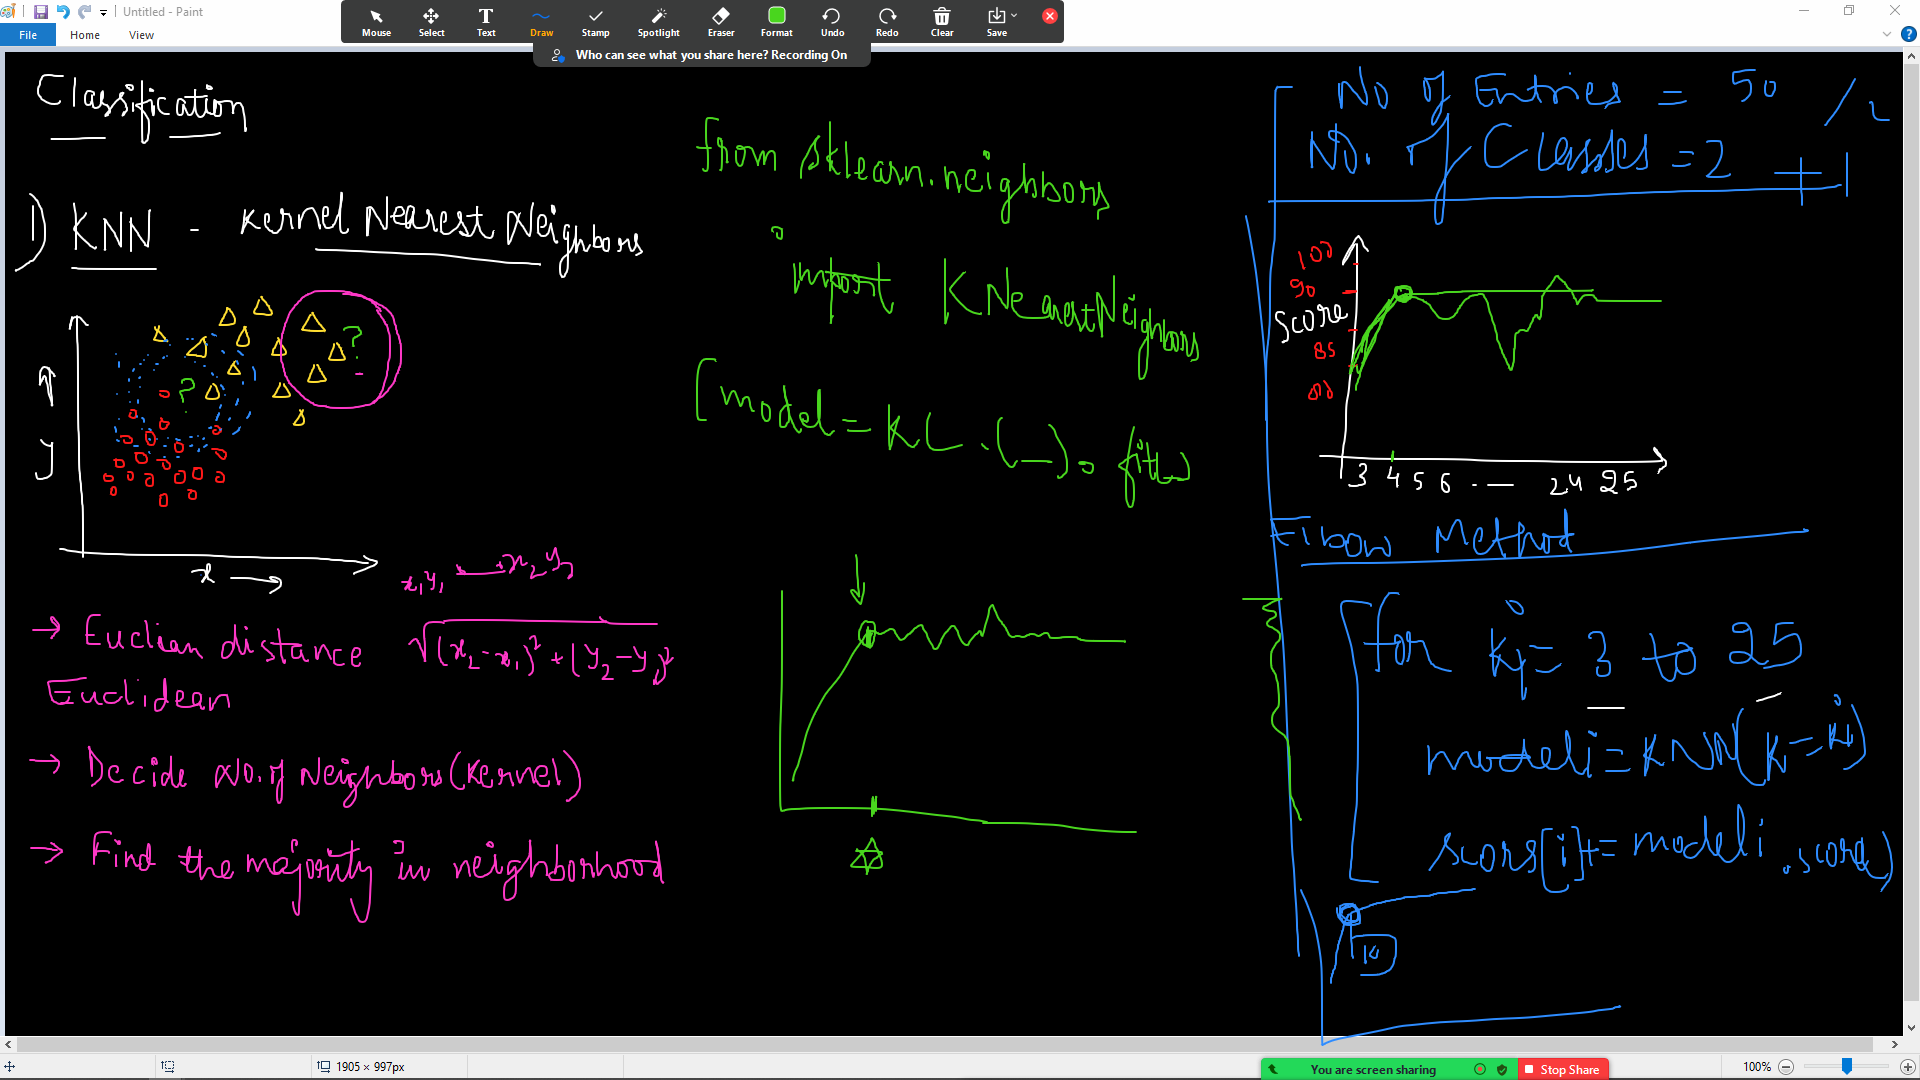 Untitled - Paint
File Home View
Mouse Select Text Draw Stamp Spotlight Eraser Format Undo Redo Clear Save
Who can see what you share here? Recording On
Classification
1) KNN - Kernel Nearest Neighbors
? ?
y
x
x1y1 x2y2
→ Euclian distance √(x2-x1)²+(y2-y1)²
Euclidean
→ Decide No. of Neighbors (Kernel)
→ Find the majority in neighborhood
from sklearn.neighbors
import KNearestNeighbors
[model = K(_.(_).fit()
No of Entries = 50 /2
No. of Classes = 2 +1
100
90
Score
85
80
3 4 5 6 .. — 24 25
Elbow Method
for i = 3 to 25
modeli = KNN(K=i)
scors[i] += modeli.score()
10
1905 × 997px
You are screen sharing
Stop Share
100%